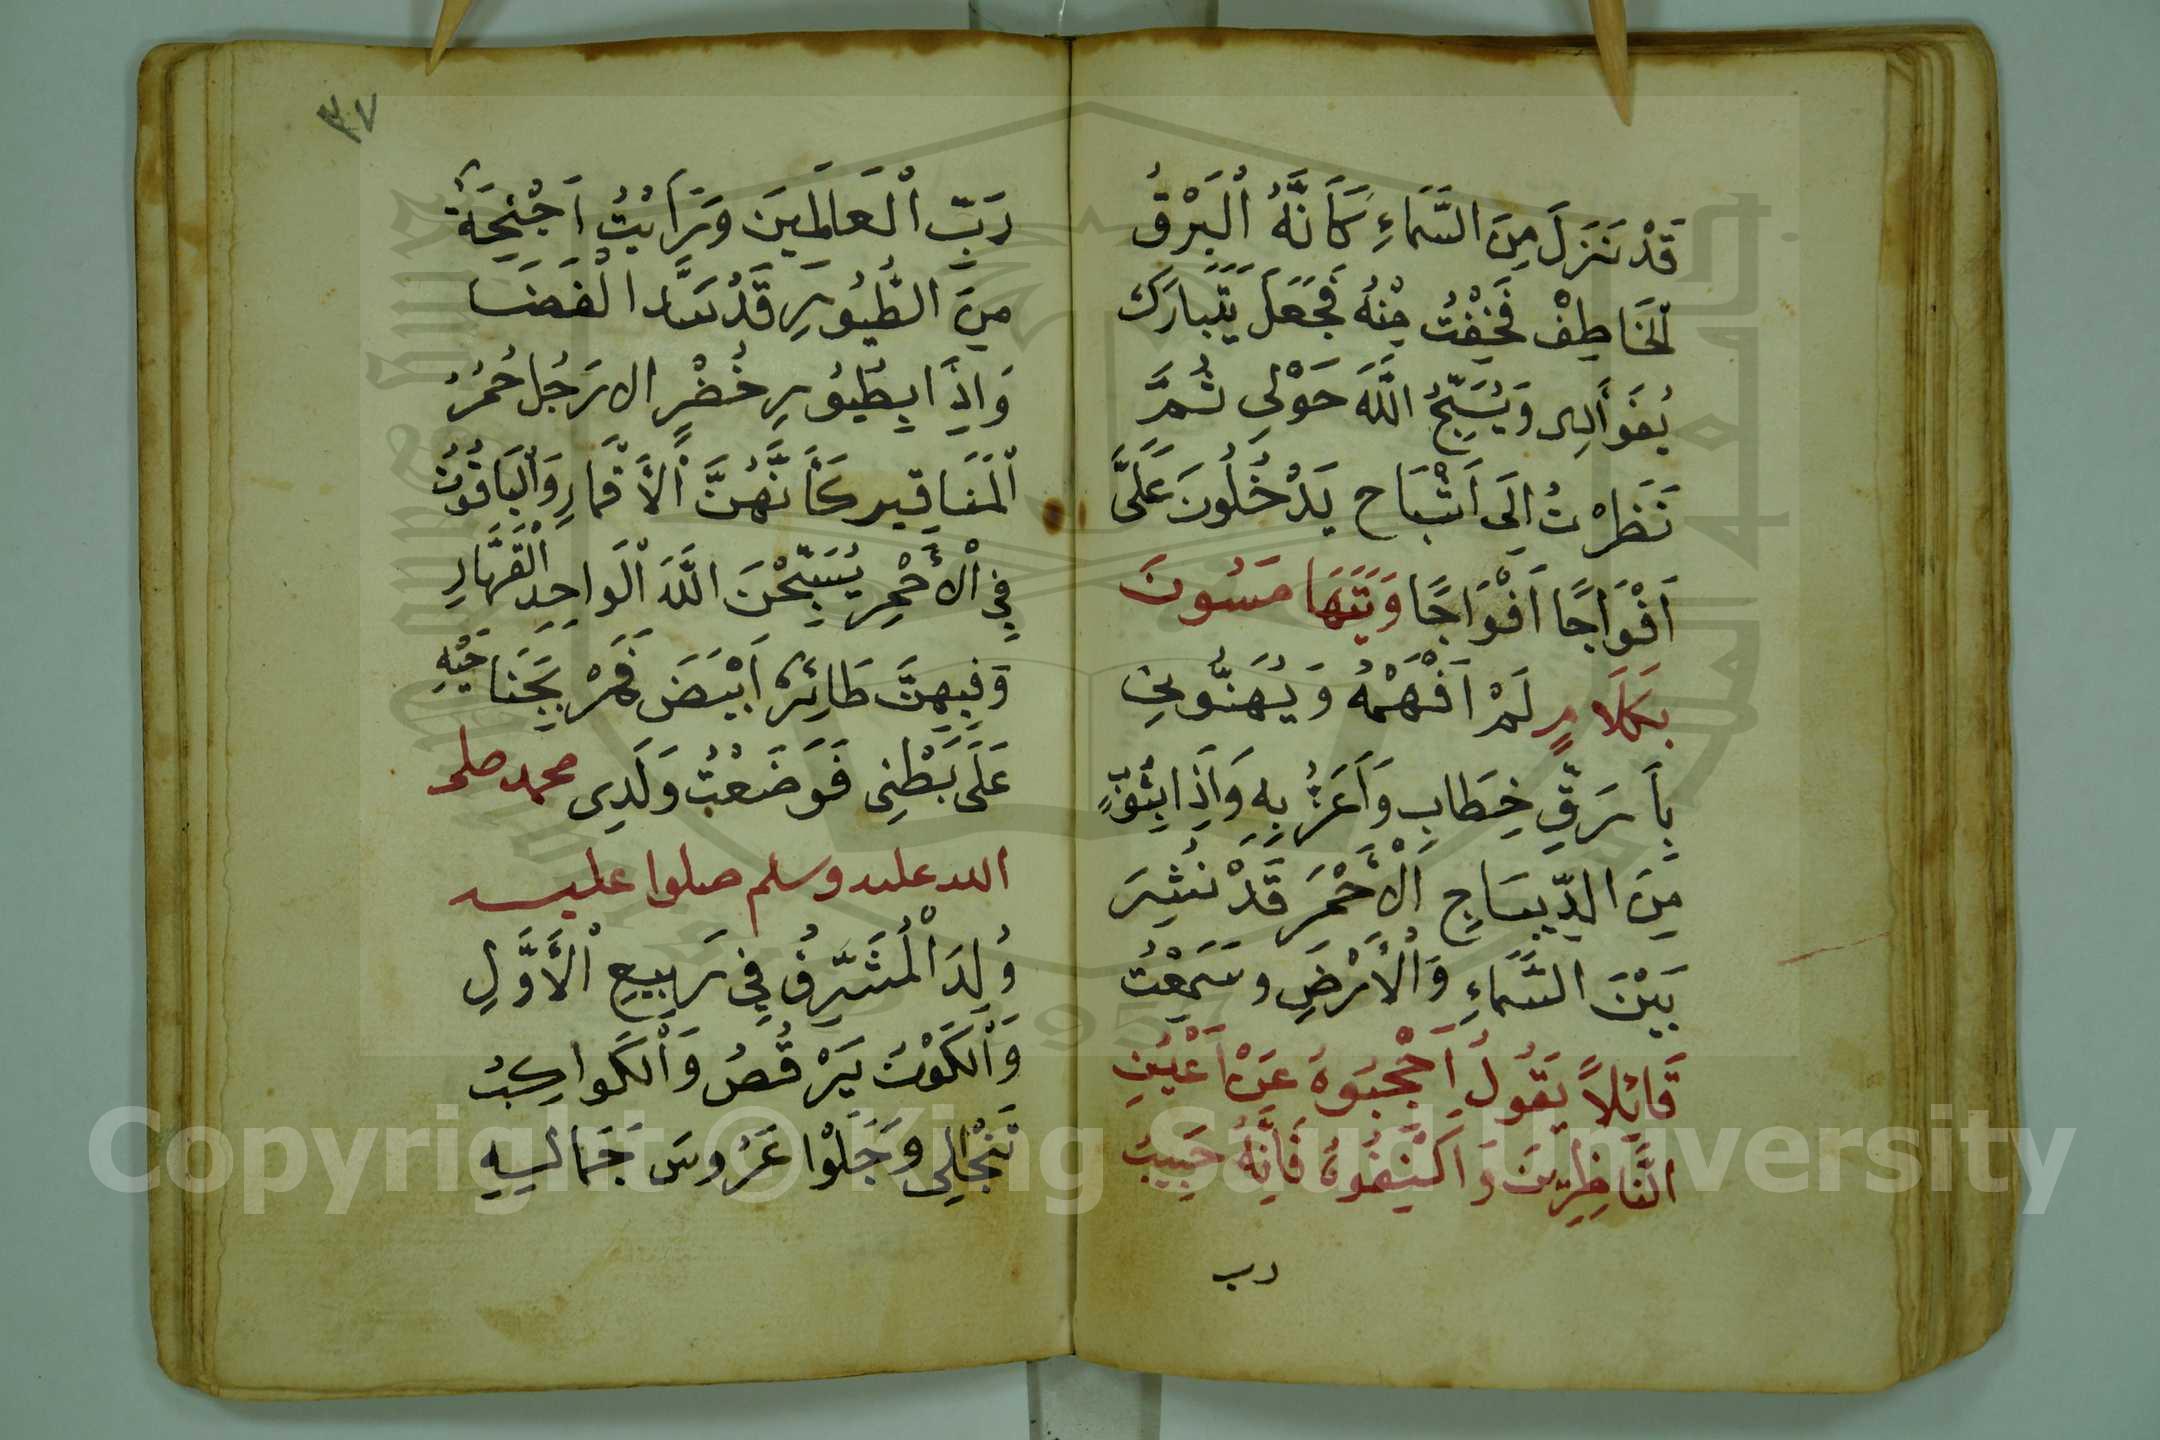 قَدْ نَزَلَ مِنَ السَّمَاءِ كَاَنَّهُ الْبَرْقُ
الْخَاطِفْ فَخِفْتُ مِنْهُ فَجَعَلَ يَتَبَارَكَ
وَيُسَبِّحُ اللَّهَ حَوْلِي ثُمَّ
نَظَرْتُ اِلَى اَشْبَاح يَدْخُلُونَ عَلَىَّ
اَفْوَاجًا اَفْوَاجًا وَيَتَهَامَسُونَ
بِكَلَامٍ لَمْ اَفْهَمْهُ وَيُهَنُّونِي
بِاَرَقِّ خِطَابِ وَاَعَزُّ بِهِ وَاِذَا بِثَوْبٍ
مِنَ الدِّيبَاجِ الْأَحْمَرَ قَدْ نُشِرَ
بَيْنَ السَّمَاءِ وَالْأَرْضِ وسَمِعْتُ
قَائلاً يَقُولُ اَحْجِبُوهُ عَنْ اَعْيُنِ
النَّاظِرِينَ وَاَكْنِفُوهُ فَاِنَّهُ حَبِيبُ
رب
٣٧
رَبِّ الْعَالَمِينَ وَرَاَيْتُ اَجْنِحَةً
مِنَ الطُّيُورِ قَدْ سَدَّ الْفَضَا
وَاِذَا بِطُيُورِ خُضْرِ الارْجُل حُمْرُ
الْمَنَاقِير كَأَنَّهُنَّ الْأَقْمَارِ وَالْيَاقُوتُ
فِي الْأَحْمِر يُسَبِّحْنَ اللَّهَ الْوَاحِدِ الْقَهَّارِ
وَفِيهِنَّ طَائِرٌ اَبْيَضَ فَمَرْ بِجَنَاحَيْهِ
عَلَى بَطْنِي فَوَضَعْتُ وَلَدِى محمد صلى
الله عليه وسلم صلوا عليه
وُلِدَ الْمُشَرَّفُ فِي رَبِيعِ الْأَوَّلِ
وَالْكَوْنُ يَرْقُصُ وَالْكَوَاكِبُ
تَنْجَلِي وَجَلَوْا عَرُوسَ جَمَالِهِ
Copyright © King Saud University
1957